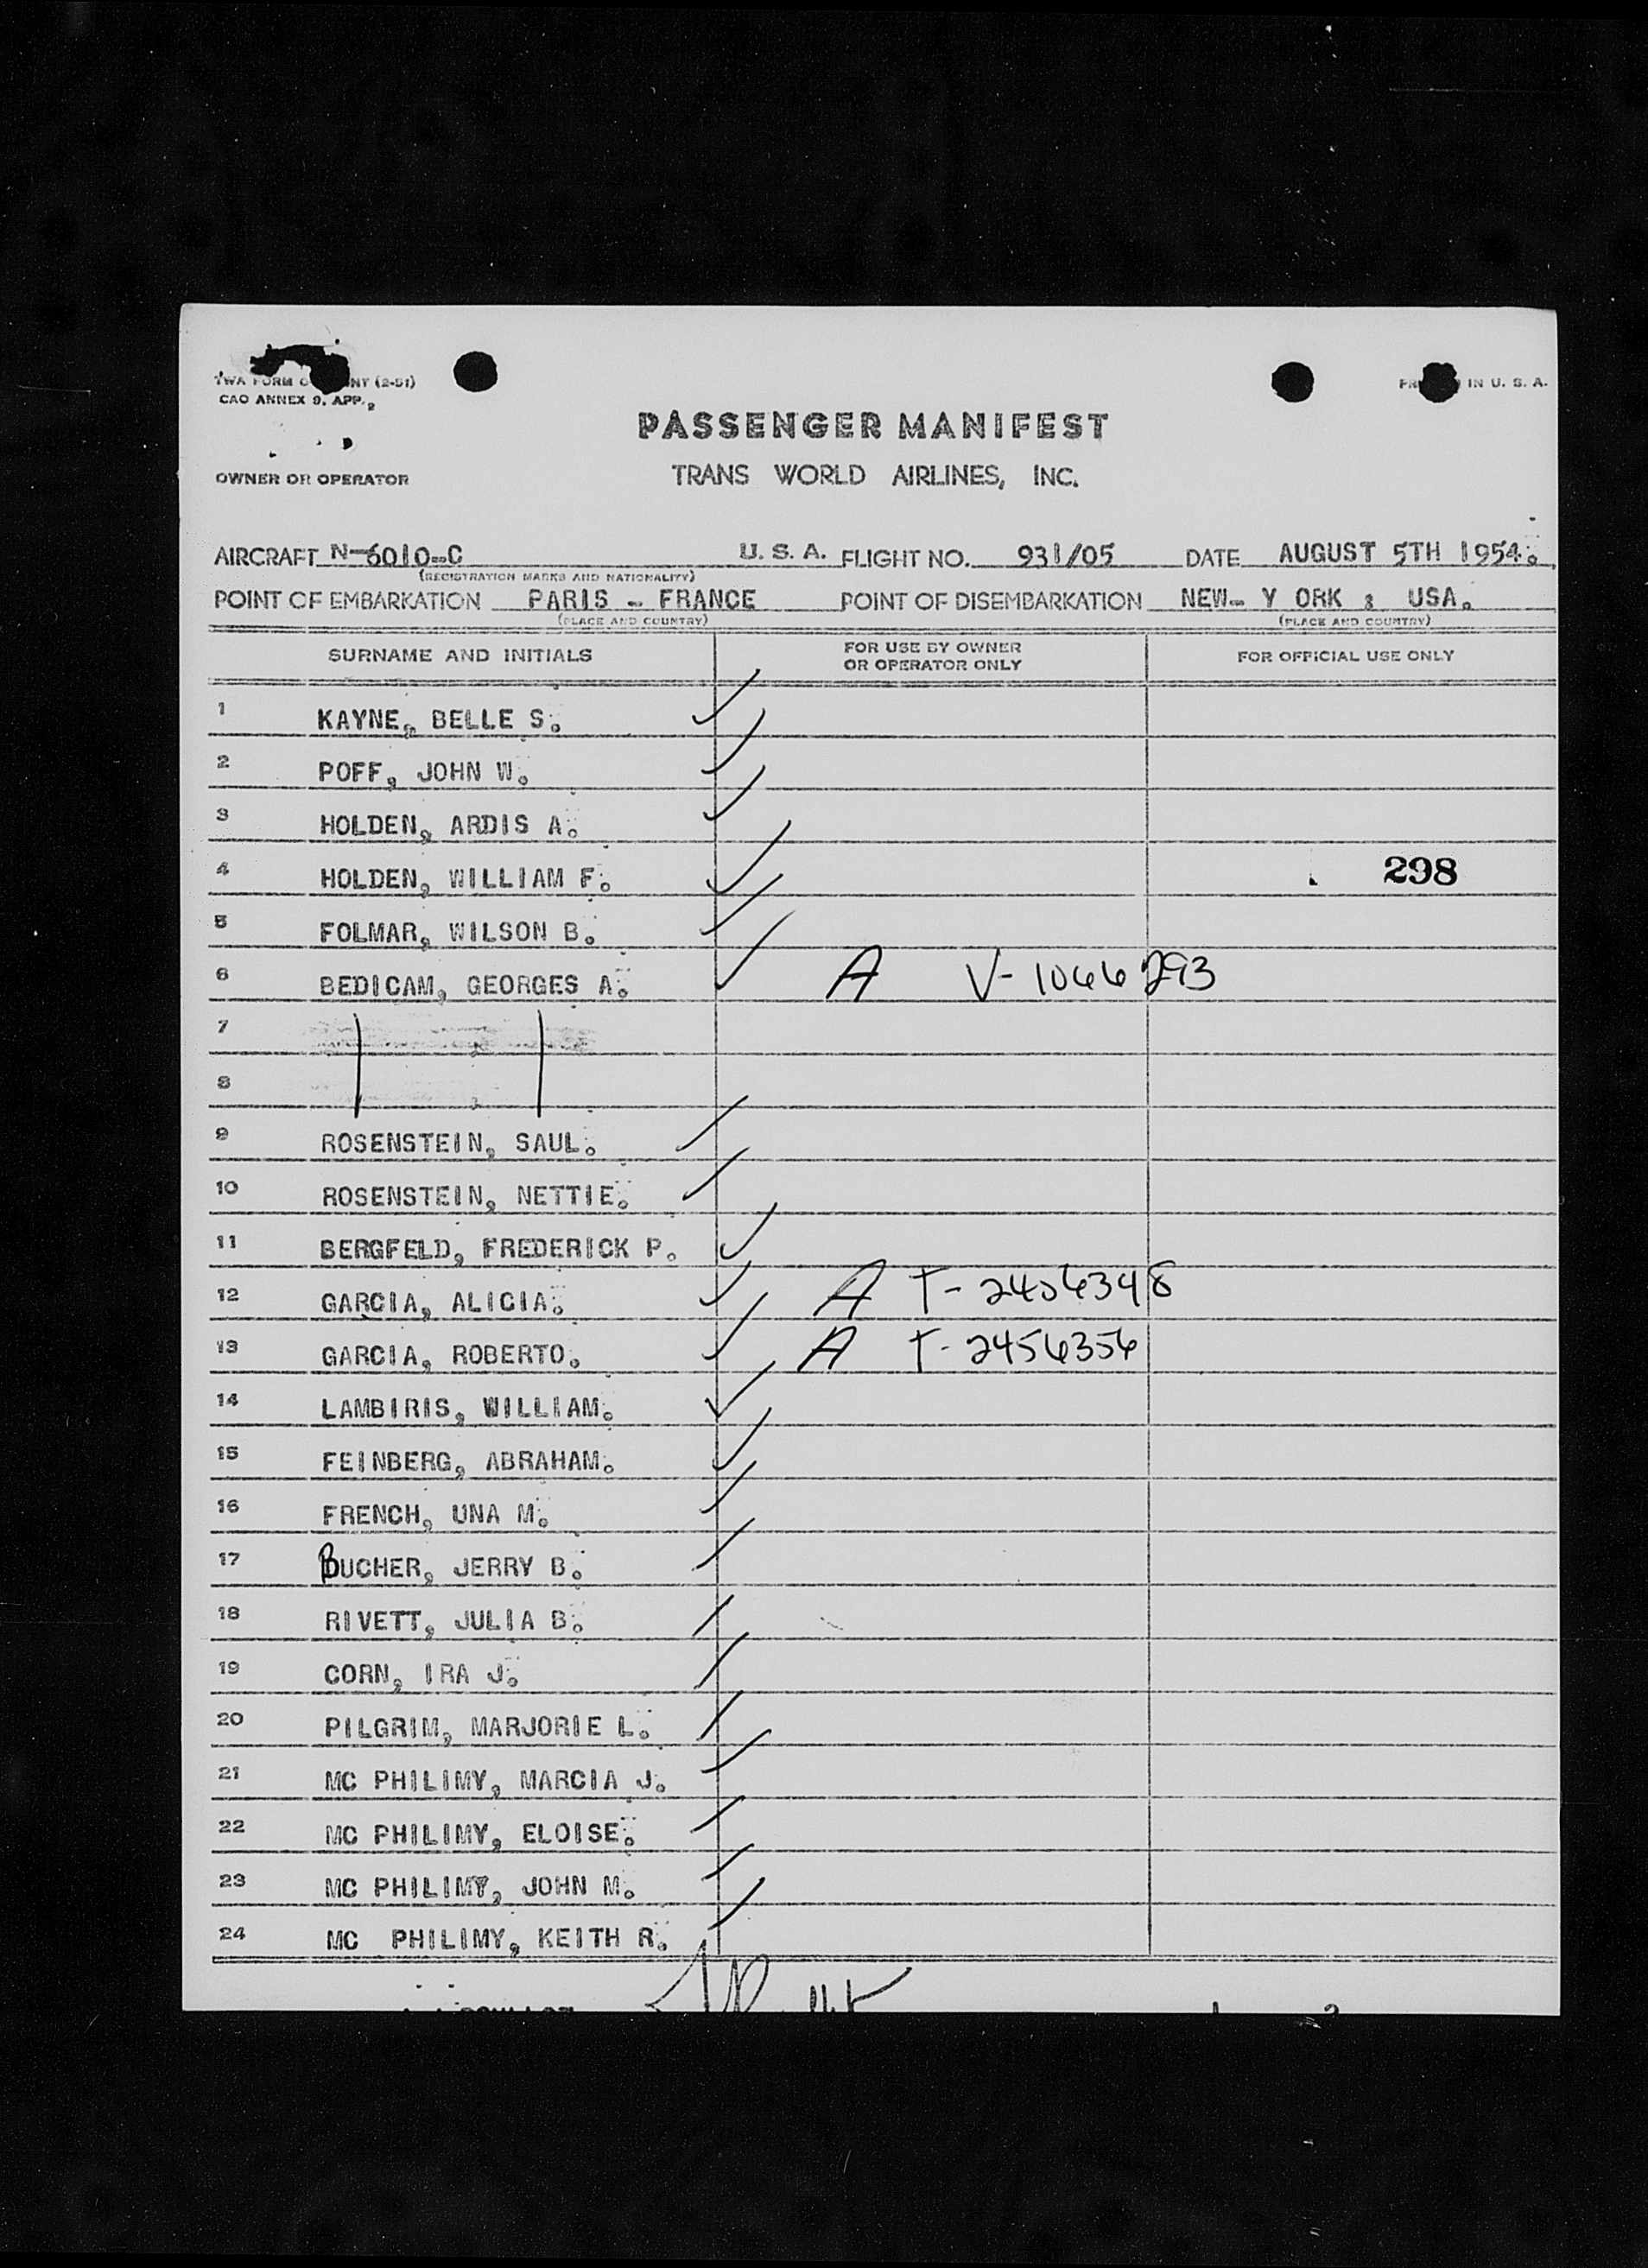 TWA FORM NT (2-51)
IN U. S. A.
CAO ANNEX 9. APP. 2
PASSENGER MANIFEST
OWNER OR OPERATOR
TRANS WORLD AIRLINES, INC.
AIRCRAFT N-6010-C U. S. A. FLIGHT NO. 931/05 DATE AUGUST 5TH 1954.
(REGISTRATION MARKS AND NATIONALITY)
POINT OF EMBARKATION PARIS - FRANCE POINT OF DISEMBARKATION NEW- Y ORK : USA.
(PLACE AND COUNTRY) (PLACE AND COUNTRY)
SURNAME AND INITIALS FOR USE BY OWNER OR OPERATOR ONLY FOR OFFICIAL USE ONLY
1 KAYNE, BELLE S. ✓
2 POFF, JOHN W. ✓
3 HOLDEN, ARDIS A. ✓
4 HOLDEN, WILLIAM F. ✓ 298
5 FOLMAR, WILSON B. ✓
6 BEDICAM, GEORGES A. ✓ A V-1066293
7
8
9 ROSENSTEIN, SAUL. ✓
10 ROSENSTEIN, NETTIE. ✓
11 BERGFELD, FREDERICK P. ✓
12 GARCIA, ALICIA. ✓ A T-2456348
13 GARCIA, ROBERTO. ✓ A T-2456356
14 LAMBIRIS, WILLIAM. ✓
15 FEINBERG, ABRAHAM. ✓
16 FRENCH, UNA M. ✓
17 BUCHER, JERRY B. ✓
18 RIVETT, JULIA B. ✓
19 CORN, IRA J. ✓
20 PILGRIM, MARJORIE L. ✓
21 MC PHILIMY, MARCIA J. ✓
22 MC PHILIMY, ELOISE. ✓
23 MC PHILIMY, JOHN M. ✓
24 MC PHILIMY, KEITH R. ✓